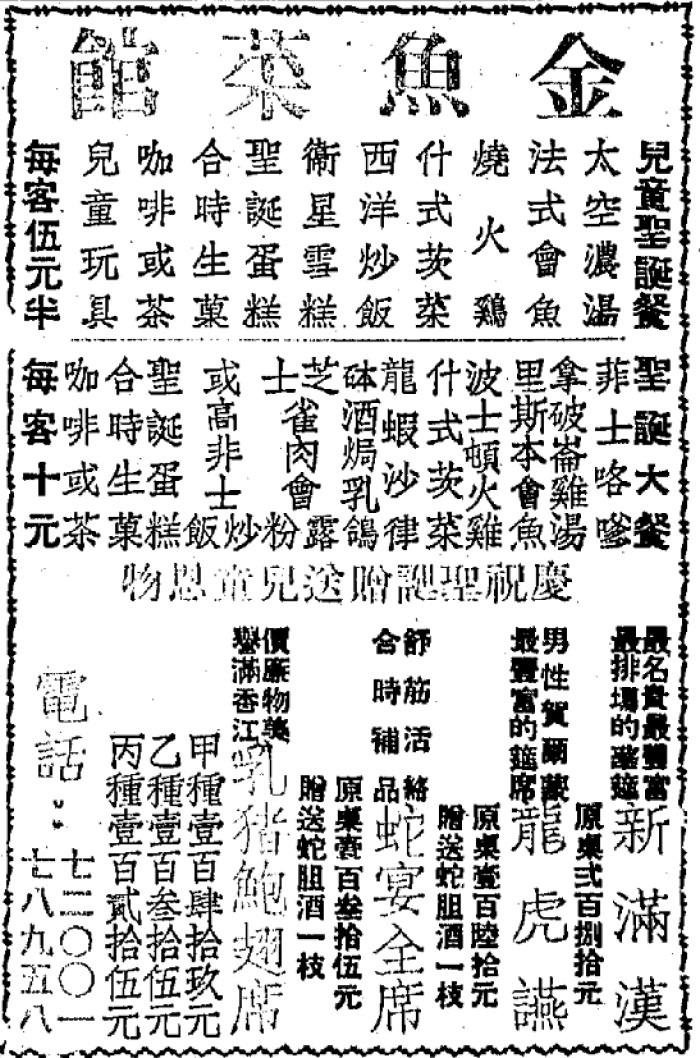 金魚菜館
兒童聖誕餐
太空濃湯
法式會魚
燒火鷄
什式茨菜
西洋炒飯
衞星雪糕
聖誕蛋糕
合時生菓
咖啡或茶
兒童玩具
每客伍元半
聖誕大餐
菲士咯嗲
拿破崙雞湯
里斯本會魚
波士頓火雞
什式茨菜
龍蝦沙律
砵酒焗乳鴿
芝士雀肉會露粉
或高非士炒飯
聖誕蛋糕
合時生菓
咖啡或茶
每客十元
慶祝聖誕贈送兒童恩物
最名貴最豐富
最排塲的盛筵
新滿漢
原桌弍百捌拾元
男性賀爾蒙
最豐富的筵席
龍虎讌
原桌壹百陸拾元
贈送蛇胆酒一枝
舒筋活絡
合時補品
蛇宴全席
原桌壹百叁拾伍元
贈送蛇胆酒一枝
價廉物美
譽滿香江
乳猪鮑翅席
甲種壹百肆拾玖元
乙種壹百叁拾伍元
丙種壹百貳拾伍元
電話：
七二〇〇一
七八九五八